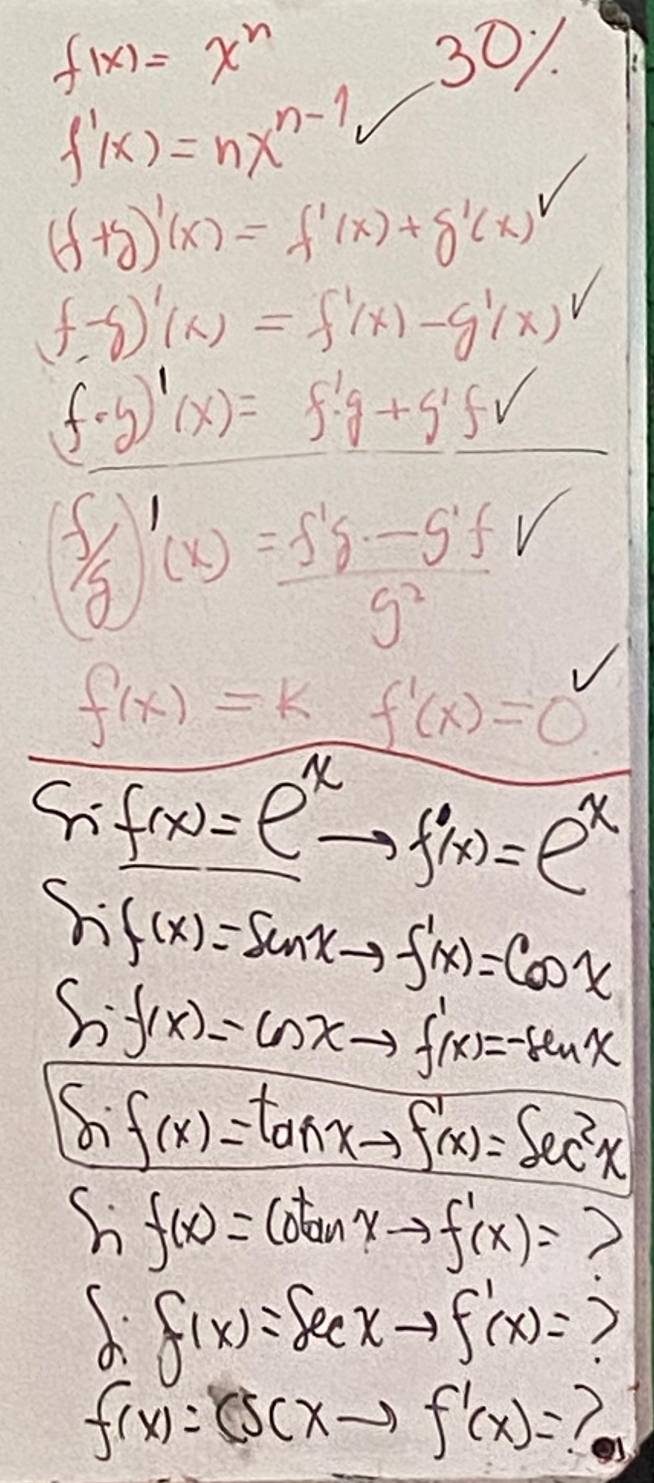 f(x) = xⁿ 30%
f'(x) = nxⁿ⁻¹ ✓
(f+g)'(x) = f'(x) + g'(x) ✓
(f-g)'(x) = f'(x) - g'(x) ✓
(f·g)'(x) = f'·g + g'f ✓
(f/g)'(x) = f'g - g'f / g² ✓
f(x) = K f'(x) = 0 ✓
Si f(x) = eˣ → f'(x) = eˣ
Si f(x) = Senx → f'(x) = Cos x
Si f(x) = cosx → f'(x) = -senx
Si f(x) = tanx → f'(x) = Sec²x
Si f(x) = Cotan x → f'(x) = ?
Si f(x) = Sec x → f'(x) = ?
f(x) = CSCX → f'(x) = ?